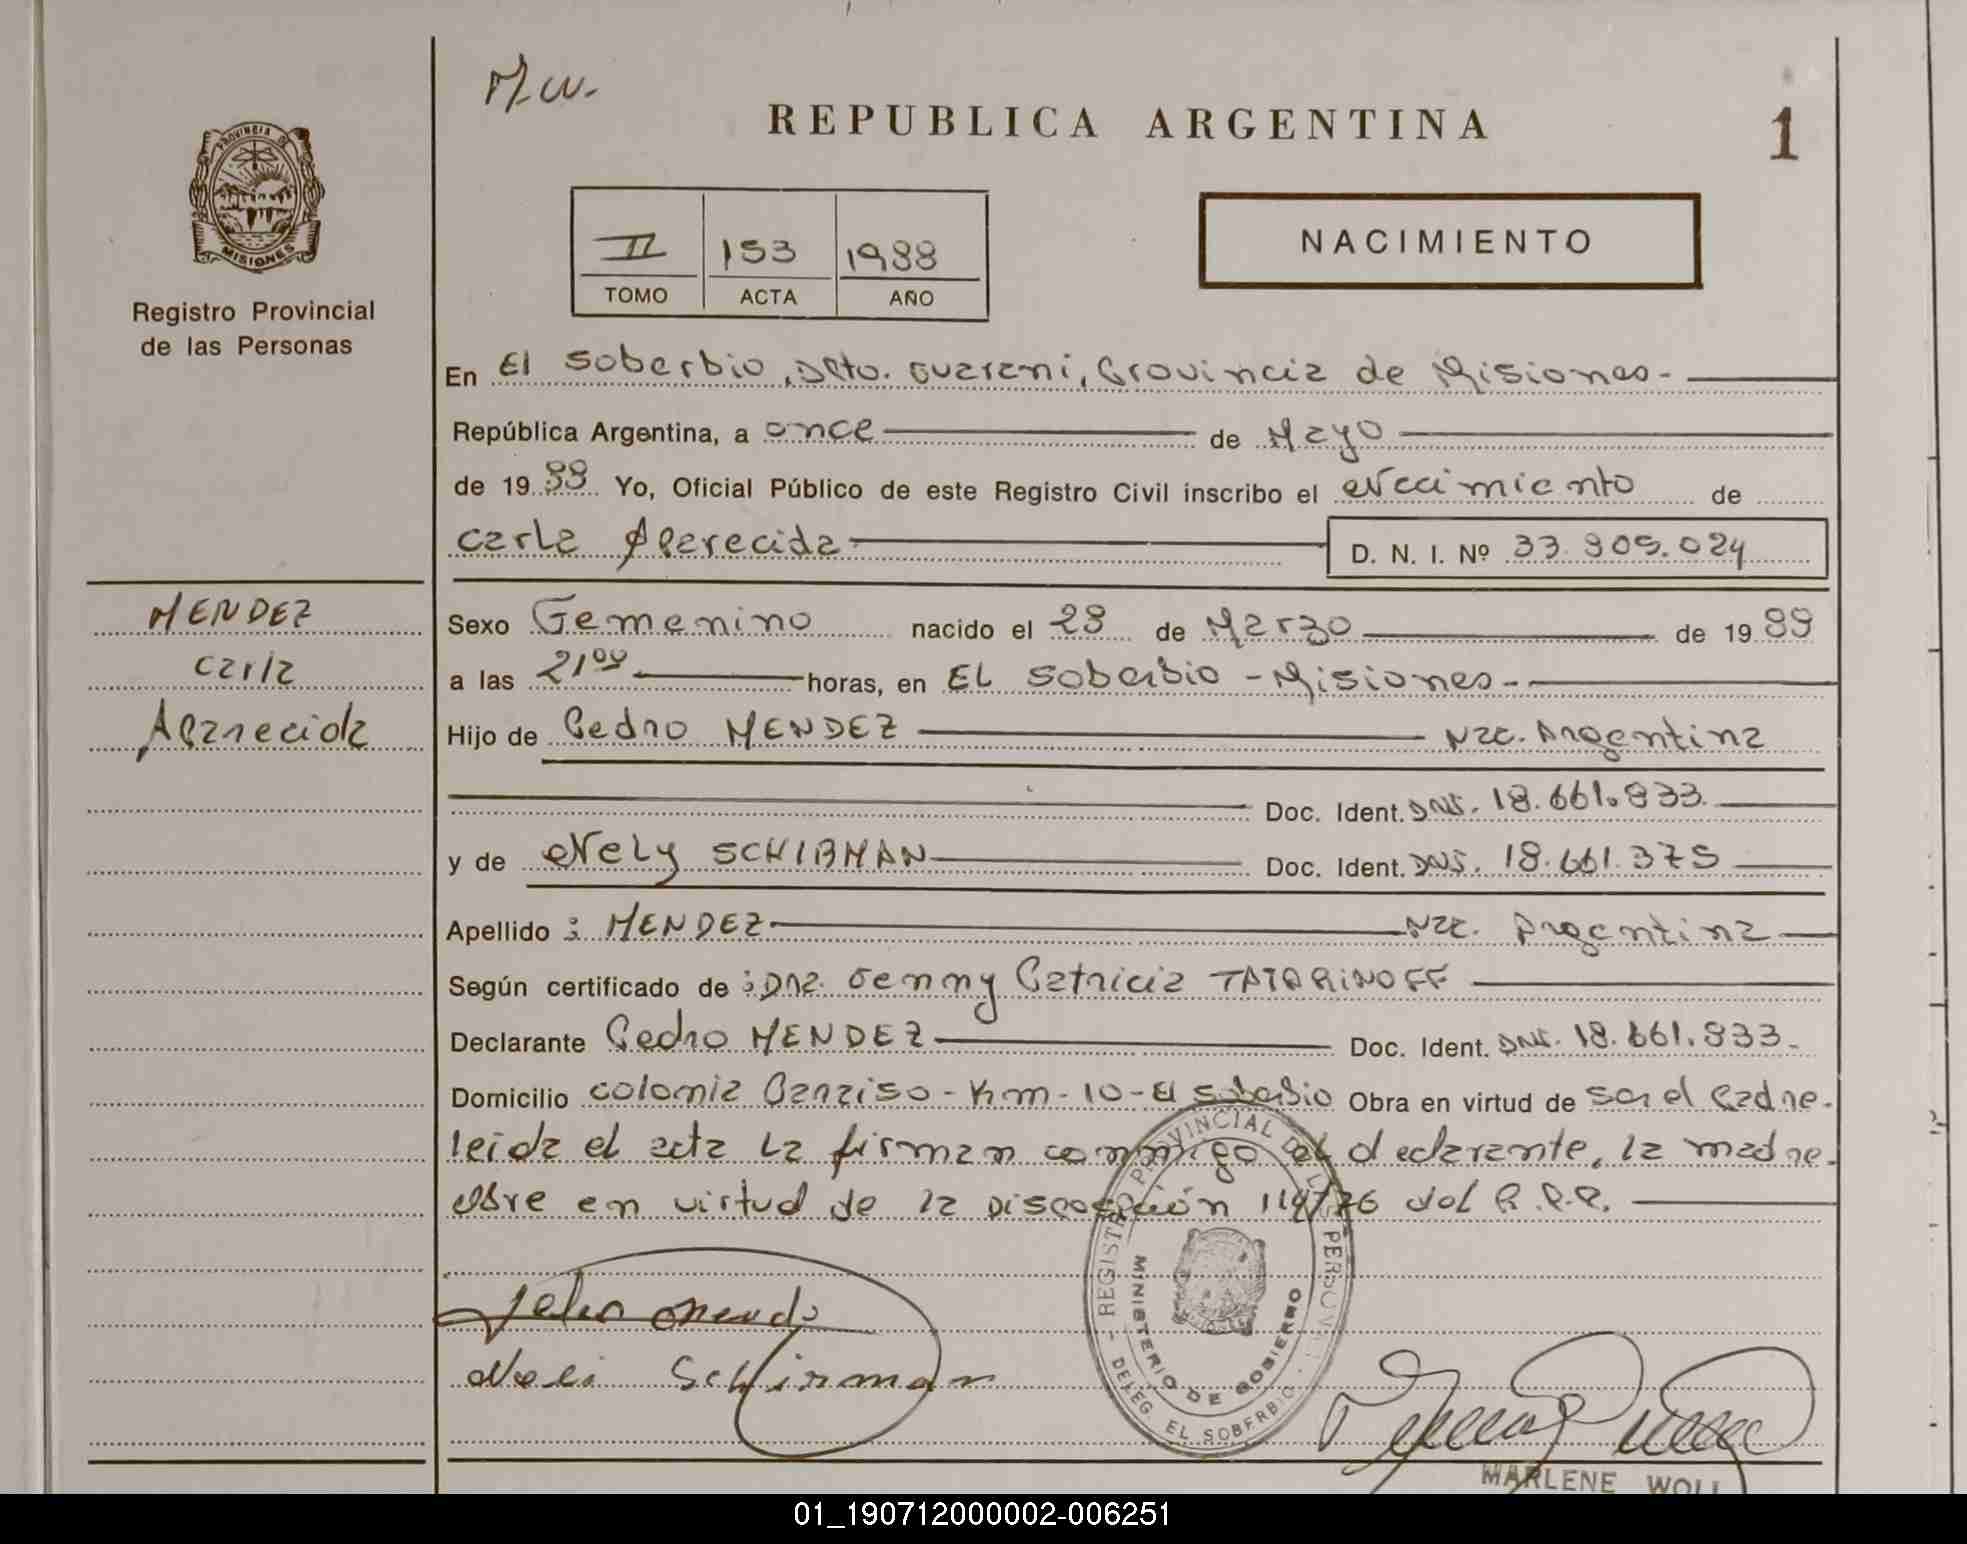 M.W.
REPUBLICA ARGENTINA
1
PROVINCIA DE
MISIONES
Registro Provincial
de las Personas
II 153 1988
TOMO ACTA AÑO
NACIMIENTO
En El Soberbio, Dpto. Guarani, Provincia de Misiones.-
República Argentina, a once de Mayo
de 1988 Yo, Oficial Público de este Registro Civil inscribo el Nacimiento de
Carla Aparecida D. N. I. Nº 33.905.024
MENDEZ
Carla
Aparecida
Sexo Femenino nacido el 28 de Marzo de 1988
a las 21⁰⁰ horas, en EL Soberbio - Misiones.-
Hijo de Pedro MENDEZ Nac. Argentina
Doc. Ident. DNI. 18.661.833.
y de Nely SCHIRMAN Doc. Ident. DNI. 18.661.375
Apellido : MENDEZ Nac. Argentina
Según certificado de : Dra. Genny Patricia TATARINOFF
Declarante Pedro MENDEZ Doc. Ident. DNI. 18.661.833.-
Domicilio colonia Paraiso - Km - 10 - El Soberbio Obra en virtud de ser el Padre.
leida el acta La firman conmigo el declarante, la madre.
obre en virtud de la Disposición 114/76 del R.P.P.
Neli Schirman
REGISTRO PROVINCIAL DE LAS PERSONAS
MINISTERIO DE GOBIERNO
DELEG. EL SOBERBIO
MARLENE WOLL
01_190712000002-006251